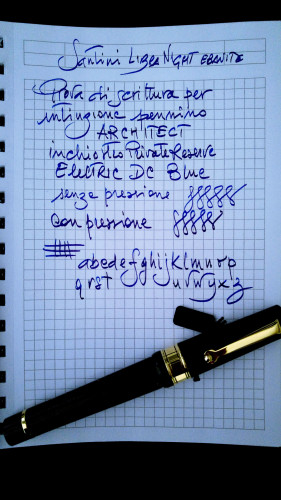 Santini Libra Night ebanite
Prova di scrittura per
intinzione pennino
ARCHITECT
inchiostro Private Reserve
Electric DC Blue
senza pressione
con pressione
abcdefghijklmnop
qrst uvwyxz